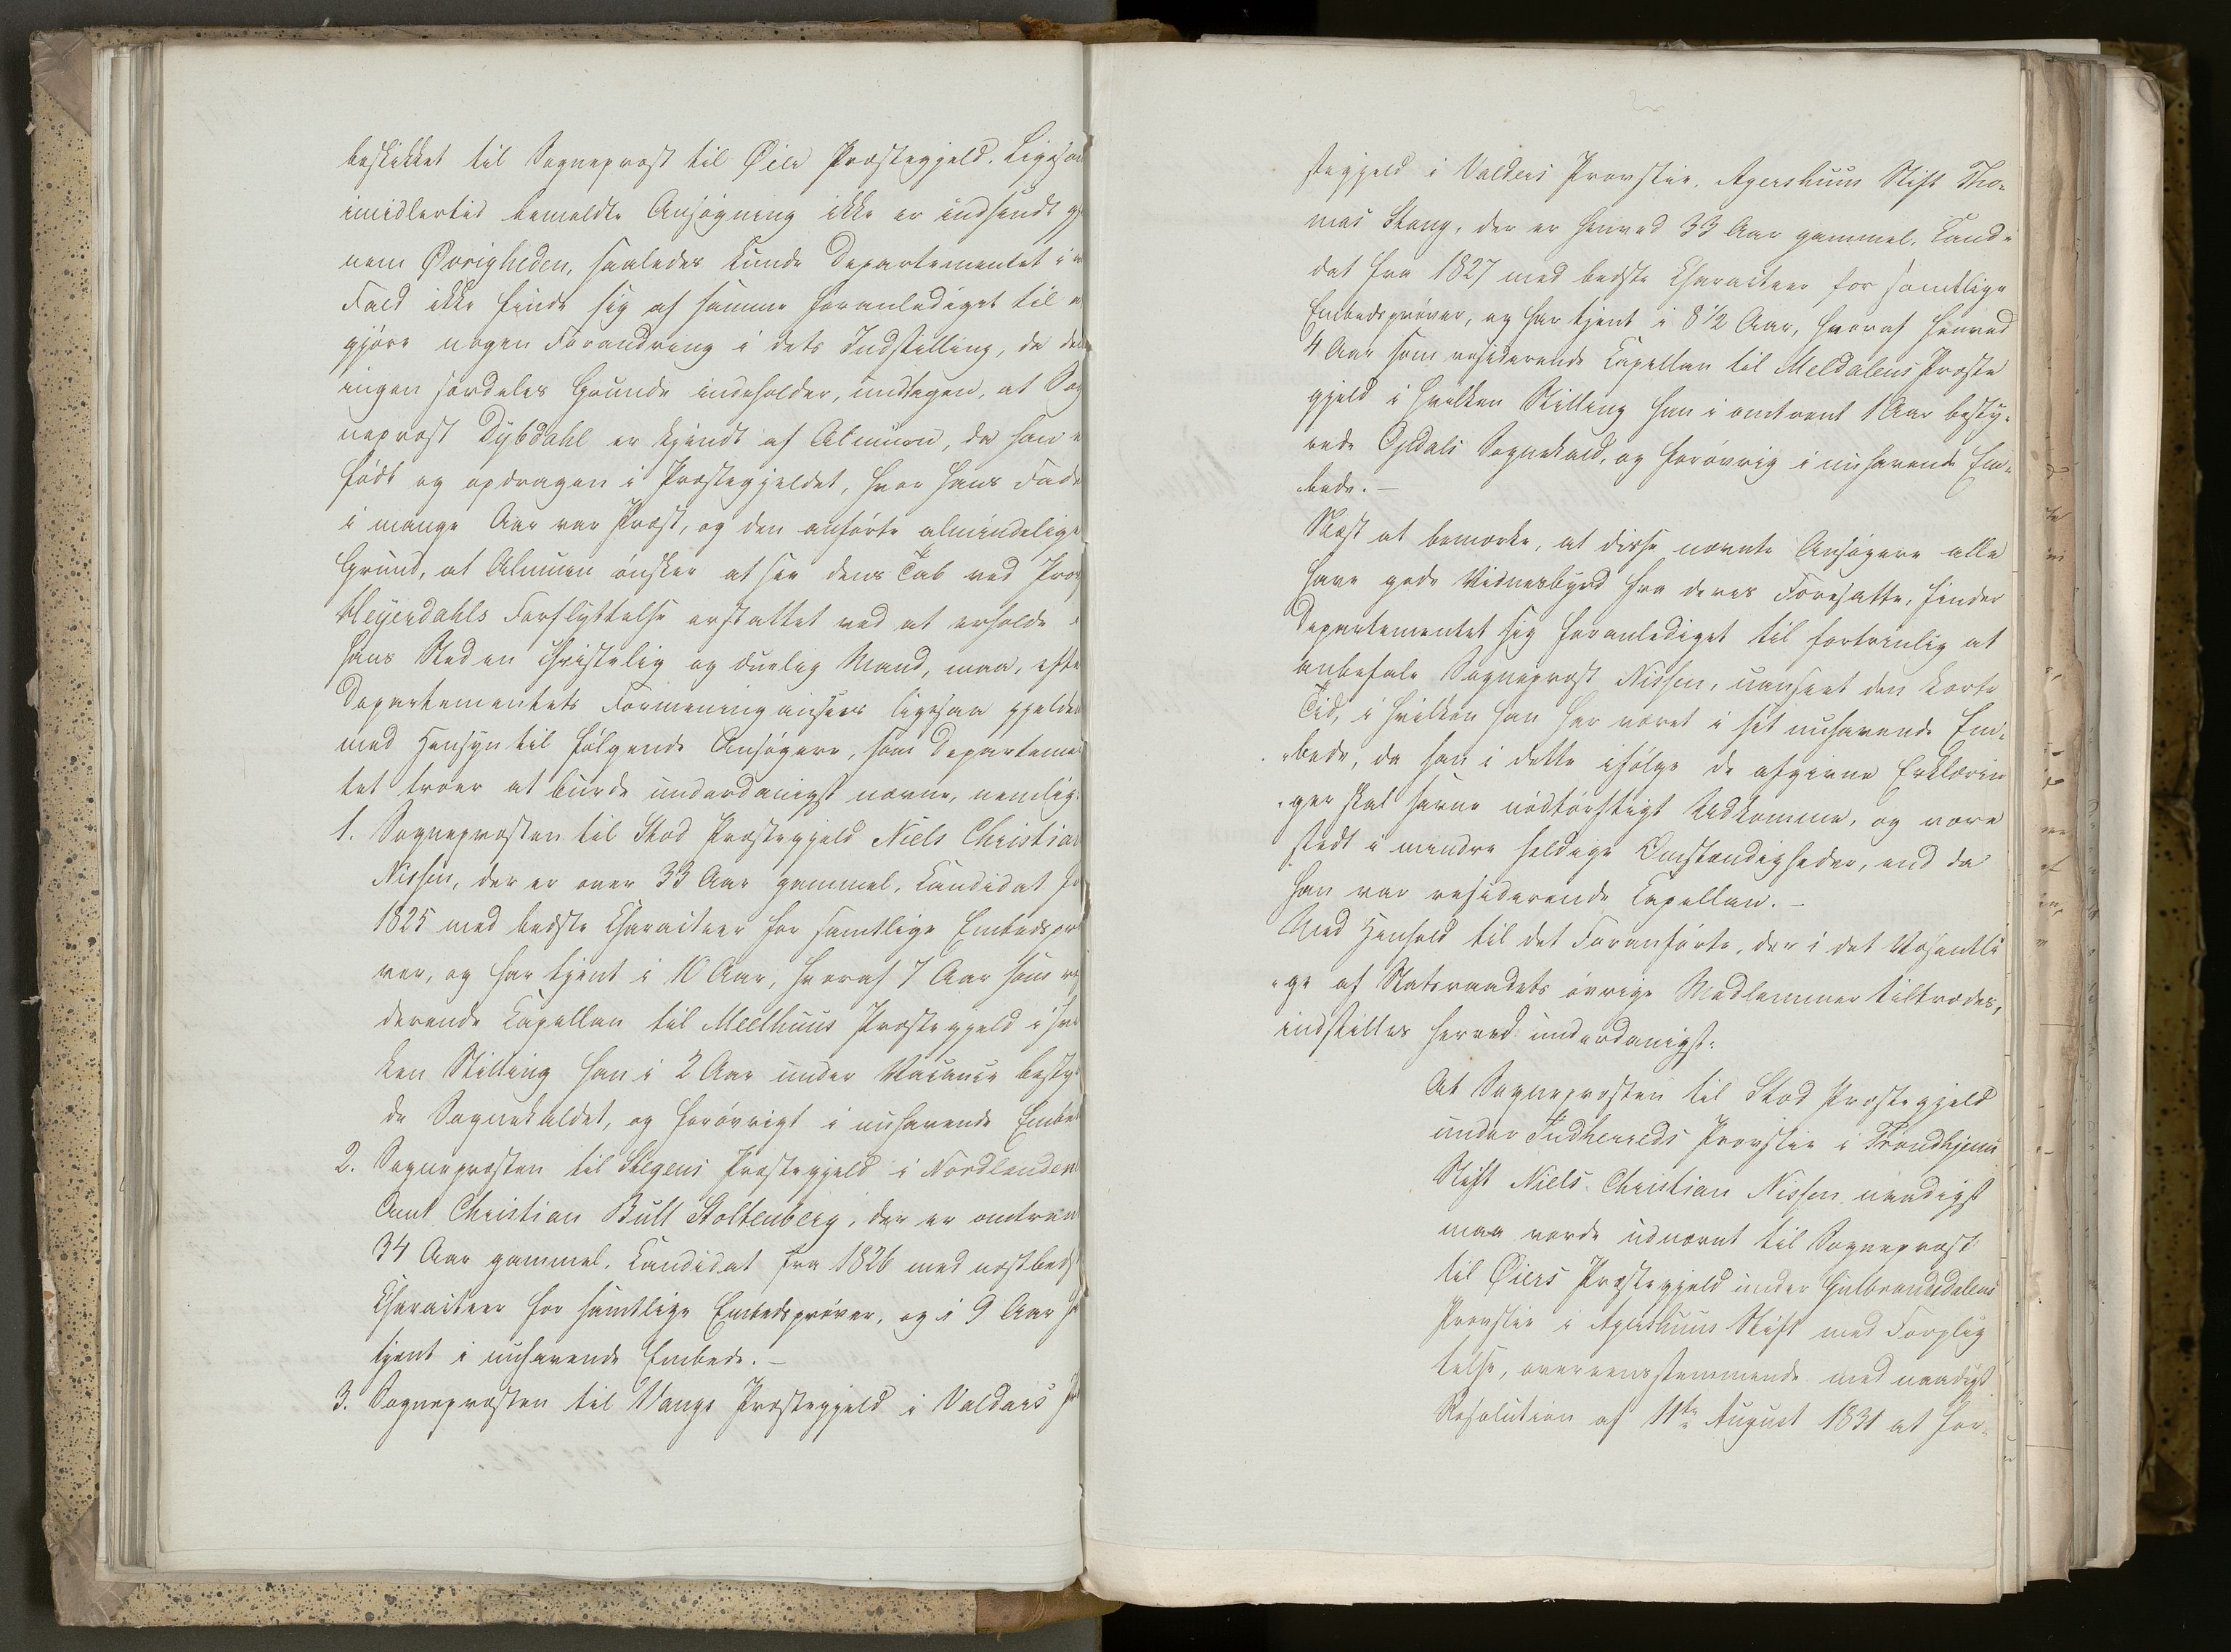 beskikket til Sognepræst til Øiers Præstegjeld. Ligesom
imidlertid bemeldte Ansøgning ikke er indsendt gj
nem Øvrigheden, saaledes kunde Departementet i
Fald ikke finde sig af samme foranlediget til
gjøre nogen Forandring i dets Indstilling, da den
ingen særdeles Grunde indeholder, undtagen, at Sog
nepræst Dybdahl er kjendt af Almuen, da han e
født og opdragen i Præstegjeldet, hvor hans Fade
i mange Aar var Præst, og den anførte almindelige
Grund, at Almuen ønsker at see dens Tab ved Pro
Heyerdahls Forflyttelse erstattet ved at erholde i
hans Sted en christelig og duelig Mand, maa, efte
Departementets Formening ansees ligesaa gjelden
med Hensyn til følgende Ansøgere, som Departemen
tet troer at burde underdanigst nævne, nemlig:
1. Sognepræsten til Stod Præstegjeld Niels Christian
Nissen, der er over 33 Aar gammel, Candidat fr
1825 med bedste Charakteer for samtlige Embedsprø
ver, og har tjent i 10 Aar, hvoraf 7 Aar som re
derende Capellan til Meelhuus Præstegjeld i hvil
ken Stilling han i 2 Aar under Vacance besty
de Sognekaldet, og forøvrigt i nuhavende Embe
2. Sognepræsten til Stegens Præstegjeld i Nordlandens
Amt Christian Bull Stoltenberg, der er omtren
34 Aar gammel, Candidat fra 1826 med næstbedst
Charakteer for samtlige Embedsprøver, og i 9 Aar h
tjent i nuhavende Embede.-
3. Sognepræsten til Vangs Præstegjeld i Valders
stegjeld i Valders Provstie, Agershuus Stift Tho-
mas Stang, der er henved 33 Aar gammel, Candi-
dat fra 1827 med bedste Charakteer for samtlige
Embedsprøver, og har tjent i 8 1/2 Aar, hvoraf henved
4 Aar som residerende Capellan til Meldalens Præste
gjeld i hvilken Stilling han i omtrent 1 Aar besty-
rede Opdals Sognekald, og forøvrig i nuhavende Em-
bede.-
Næst at bemærke, at disse nævnte Ansøgere alle
have gode Vidnesbyrd fra deres Foresatte, finder
Departementet sig foranlediget til fortrinlig at
anbefale Sognepræst Nissen, uanseet den korte
Tid, i hvilken han har været i sit nuhavende Em-
bede, da han i dette ifølge de afgivne Erklærin
ger skal havne nødtørftigt Udkomme, og være
stedt i mindre heldige Omstændigheder, end da
han var residerende Capellan.-
Med Henhold til det Foranførte, der i det Væsentli
ge af Statsraadets øvrige Medlemmer tiltrædes,
indstilles herved underdanigst:
At Sognepræsten til Stod Præstegjeld
under Indherreds Provstie i Trondhjems
Stift Niels Christian Nissen naadigst
maa vorde udnævnt til Sognepræst
til Øiers Præstegjeld under Gulbrandsdalens
Provstie i Agershuus Stift med Forplig
telse, overeensstemmende med naadigst
Resolution af 11te August 1831 at for-